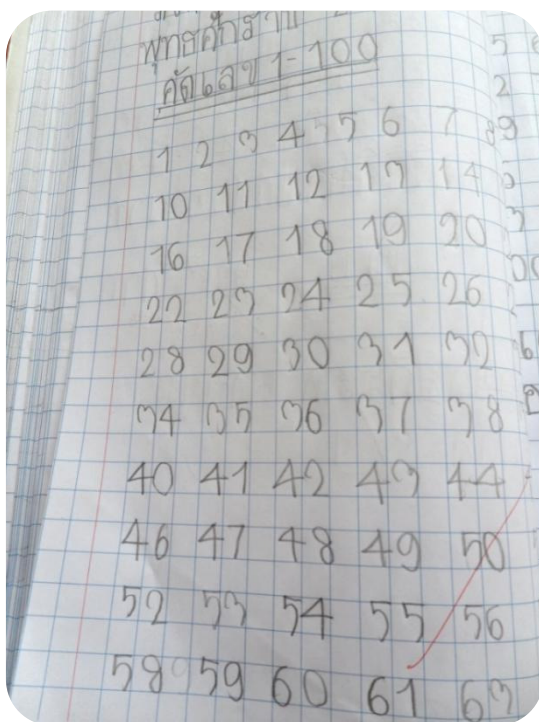 พุทธศักราช
คัดเลข 1-100
1 2 3 4 5 6 7 8 9
10 11 12 13 14
16 17 18 19 20
22 23 24 25 26
28 29 30 31 32
34 35 36 37 38
40 41 42 43 44
46 47 48 49 50
52 53 54 55 56
58 59 60 61 63